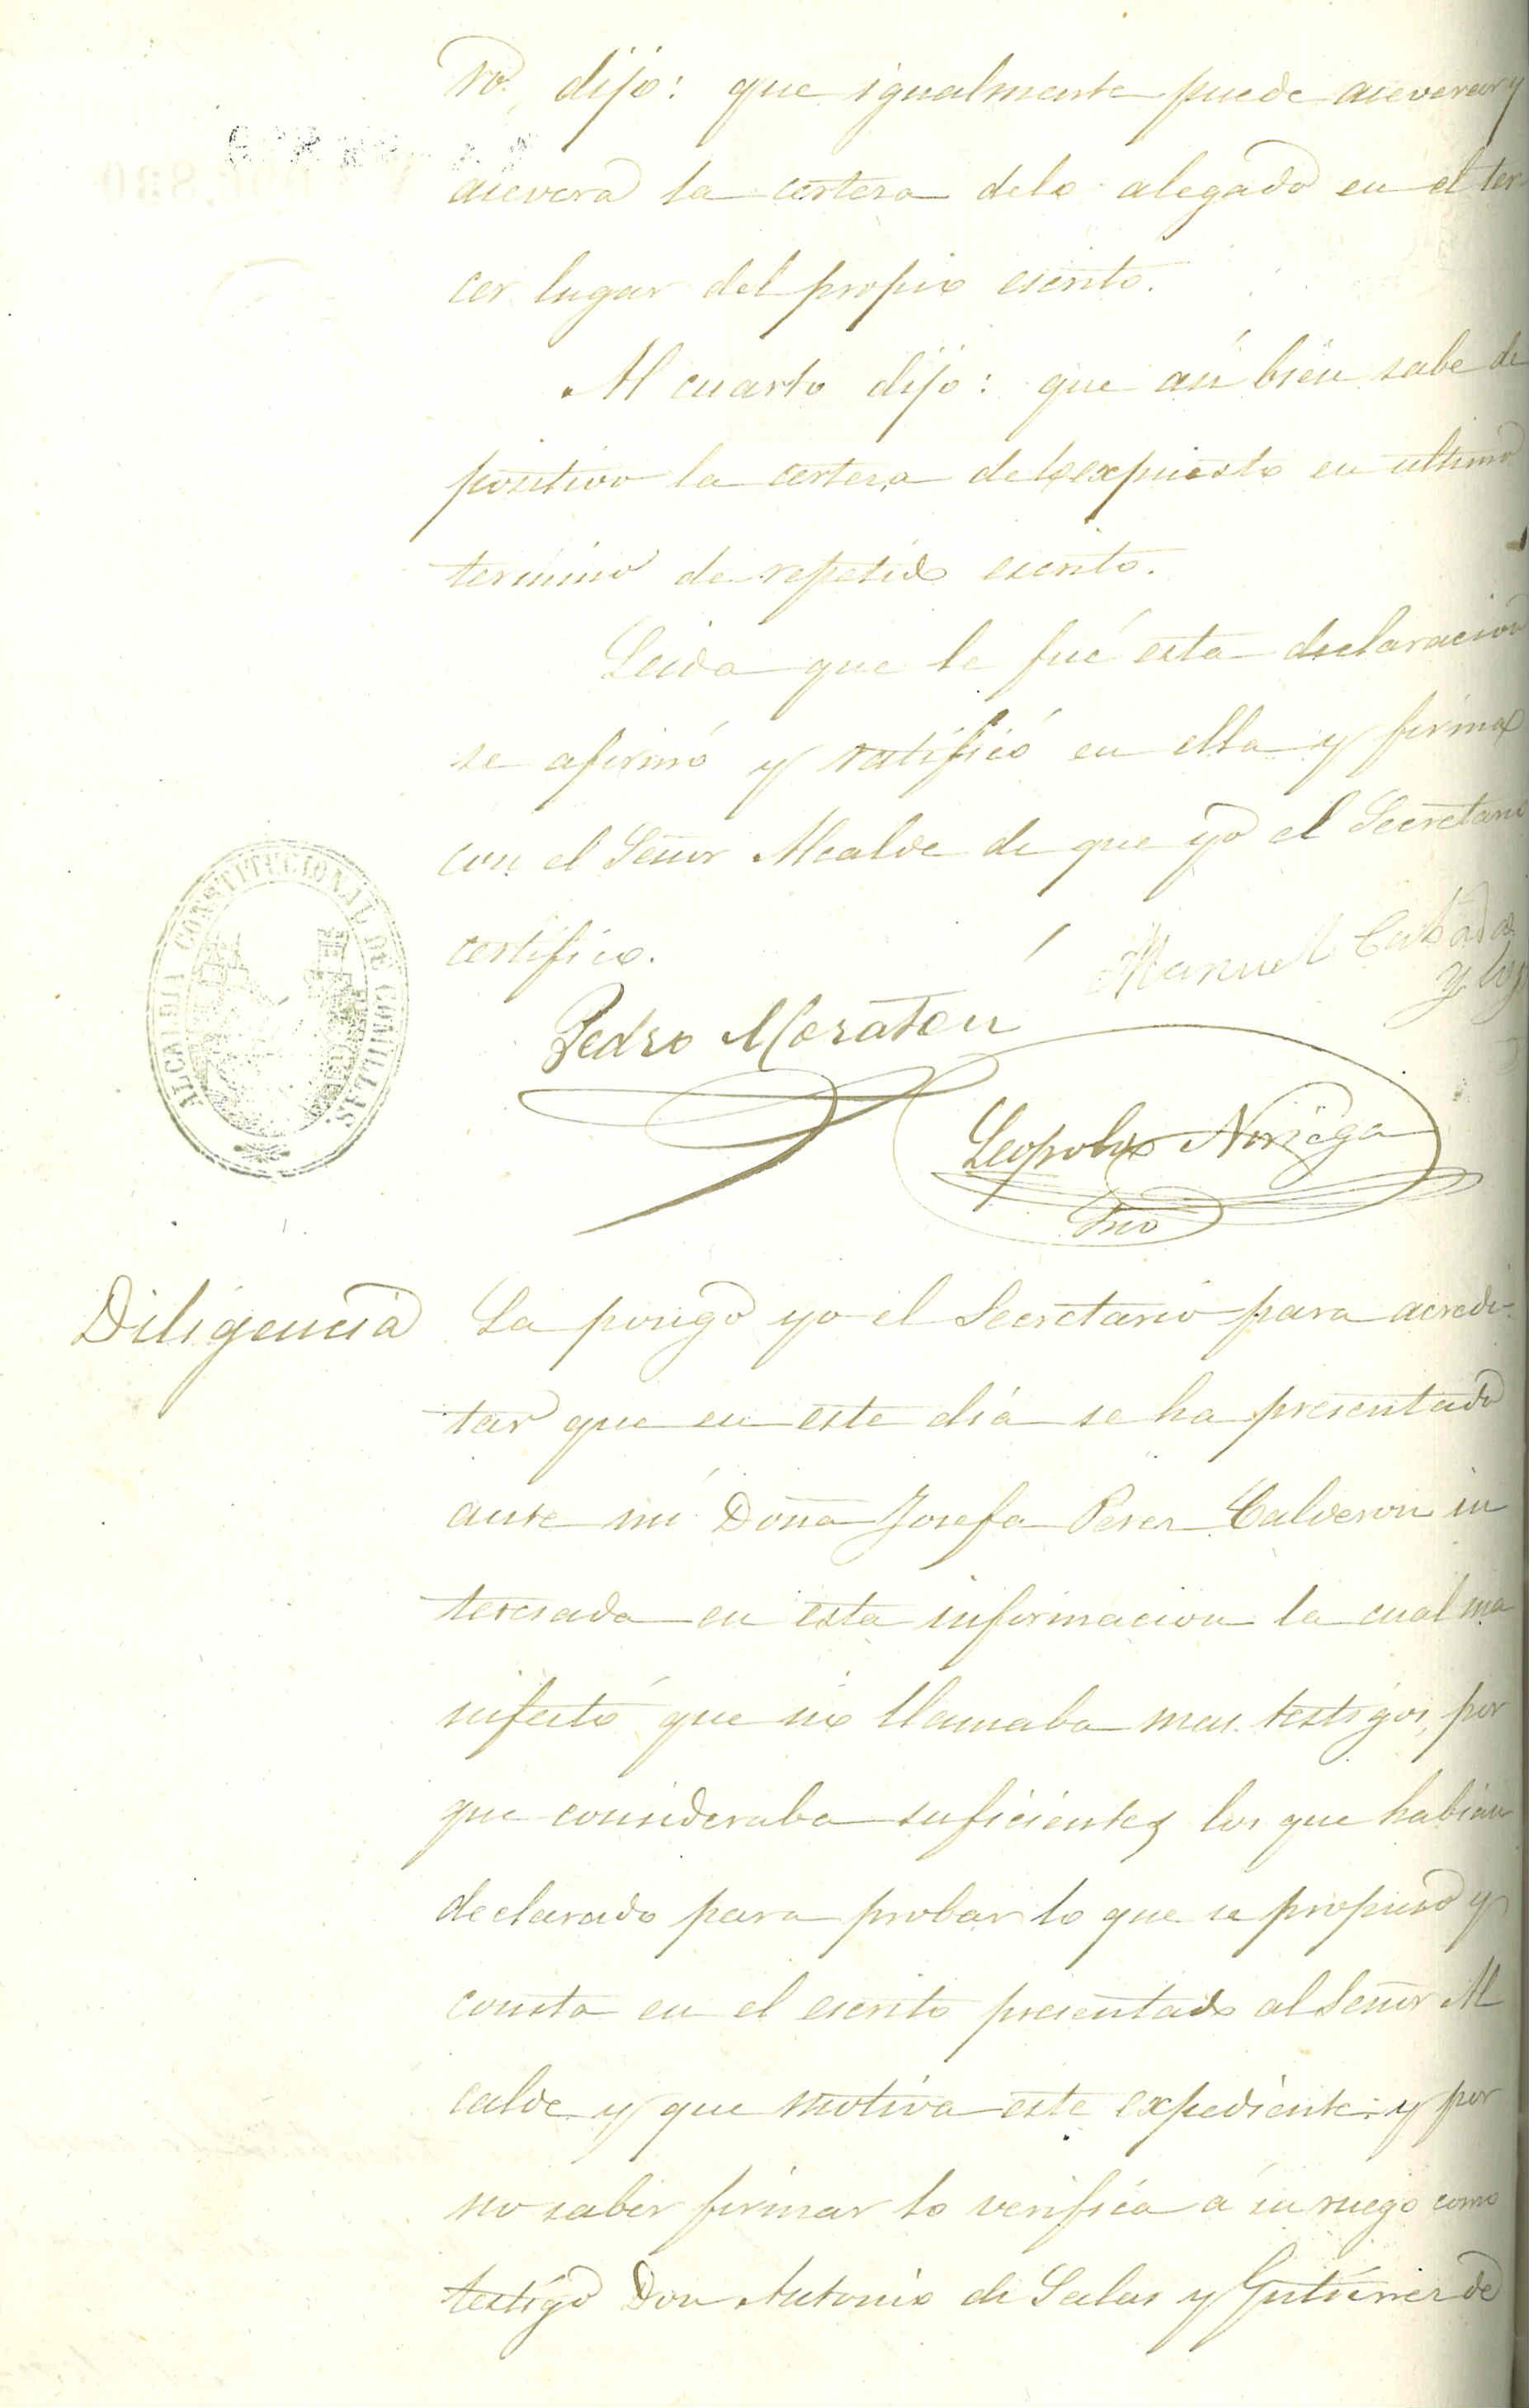 ro. dijo: que igualmente puede aseverar y
asevera la certeza delo alegado en el ter
cer lugar del propio escrito.
Al cuarto dijo: que asi bien sabe de
positivo la certeza delo expuesto en ultimo
termino de repetido escrito.
Leida que le fué esta declaracion
se afirmó y ratificó en ella y firma
con el Señor Alcalde de que yo el Secretario
certifico.
Manuel
y
ALCALDIA CONSTITUCIONAL DE COMILLAS.
Pedro Moraton
Leopoldo Noriega
Srio
Diligencia La pongo yo el Secretario para acredi-
tar que en este dia se ha presentado
ante mi Doña Josefa Perez Calderon in
teresada en esta informacion la cual ma
nifestó que no llamaba mas testigos, por
que consideraba suficientes los que habian
declarado para probar lo que se propuso y
consta en el escrito presentado al Señor Al
calde y que motiva este expediente: y por
no saber firmar lo verifica á su ruego como
testigo Don Antonio de Salas y Gutierrez de